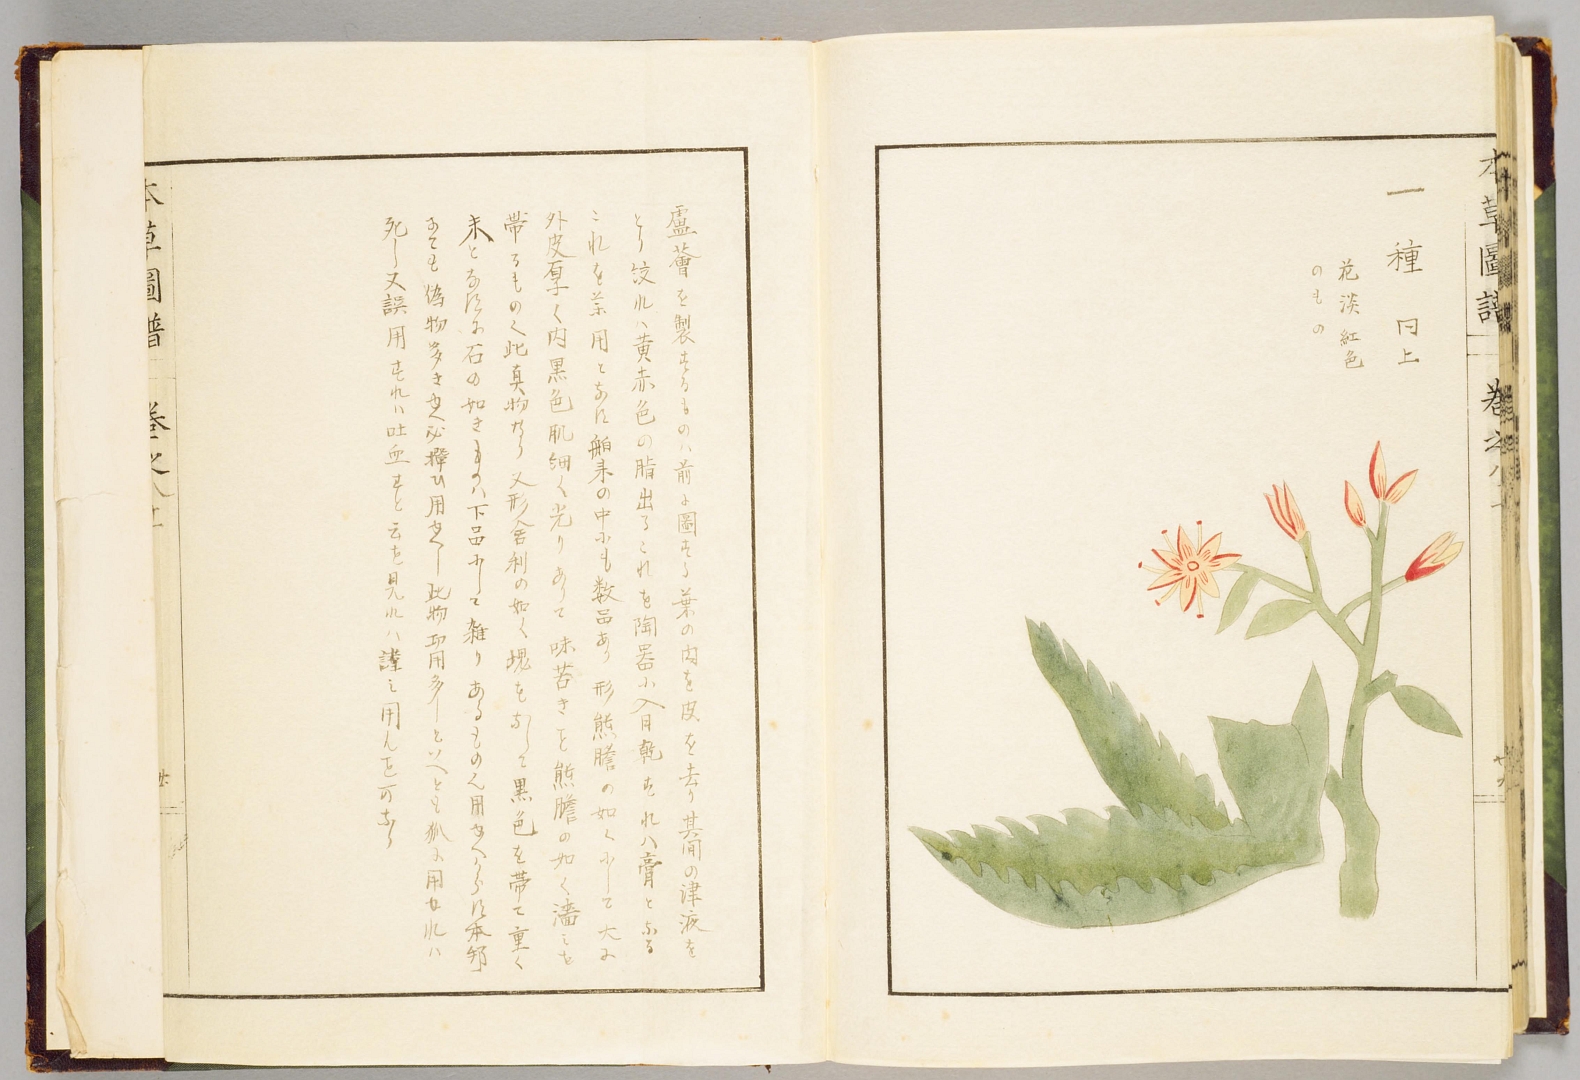 本草圖譜 巻之八十
一種 同上
花淡紅色
のもの
盧薈を製するものハ前に圖する葉の肉を皮を去り其間の津液を
とり絞れハ黄赤色の脂出るこれを陶器に入日乾すれハ膏となる
これを薬用となす舶来の中にも数品あり形熊膽の如くにして大に
外皮厚く内黒色肌細く光りありて味苦きこと熊膽の如く
帯るもの此真物なり又形舎利の如く塊をなして黒色を帯て重く
末となすに石の如きものハ下品にして雑りあるもの用ゆへからす本邦
にても偽物多き故必擇ひ用ゆへし此物功用多しといへとも狐に用ゆれハ
死し又誤用すれハ吐血すと云を見れハ謹て用んを可なり
本草圖譜 巻之八十